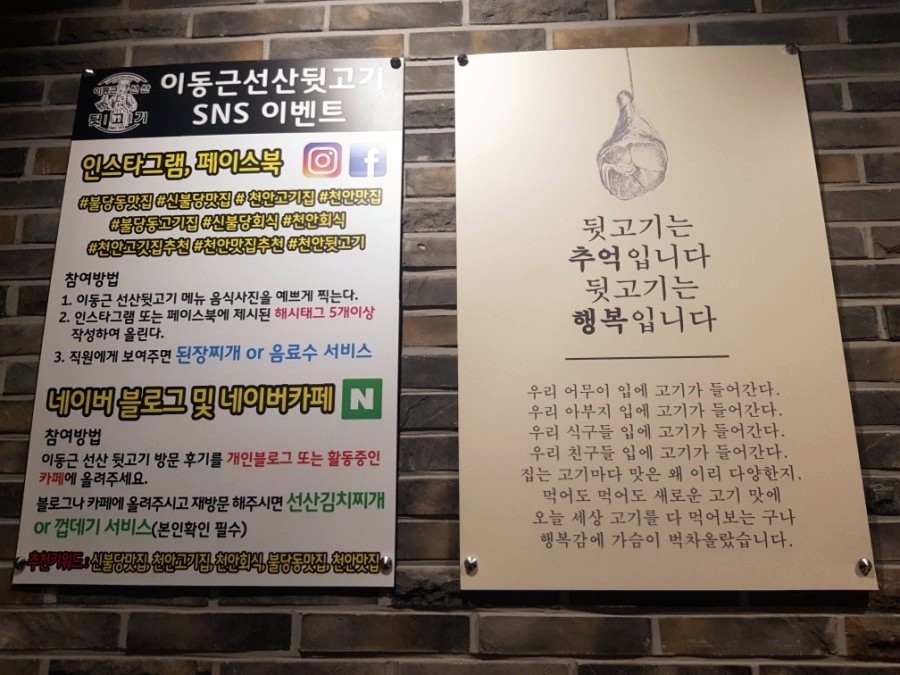 이동근선산
뒷고기
이동근선산뒷고기
SNS 이벤트
인스타그램, 페이스북
#불당동맛집 #신불당맛집 # 천안고기집 #천안맛집
#불당동고기집 #신불당회식 #천안회식
#천안고깃집추천 #천안맛집추천 #천안뒷고기
참여방법
1. 이동근 선산뒷고기 메뉴 음식사진을 예쁘게 찍는다.
2. 인스타그램 또는 페이스북에 제시된 해시태그 5개이상
작성하여 올린다.
3. 직원에게 보여주면 된장찌개 or 음료수 서비스
네이버 블로그 및 네이버카페 N
참여방법
이동근 선산 뒷고기 방문 후기를 개인블로그 또는 활동중인
카페에 올려주세요.
블로그나 카페에 올려주시고 재방문 해주시면 선산김치찌개
or 껍데기 서비스(본인확인 필수)
추천키워드 : 신불당맛집, 천안고기집, 천안회식, 불당동맛집, 천안맛집
뒷고기는
추억입니다
뒷고기는
행복입니다
우리 어무이 입에 고기가 들어간다.
우리 아부지 입에 고기가 들어간다.
우리 식구들 입에 고기가 들어간다.
우리 친구들 입에 고기가 들어간다.
집는 고기마다 맛은 왜 이리 다양한지.
먹어도 먹어도 새로운 고기 맛에
오늘 세상 고기를 다 먹어보는 구나
행복감에 가슴이 벅차올랐습니다.